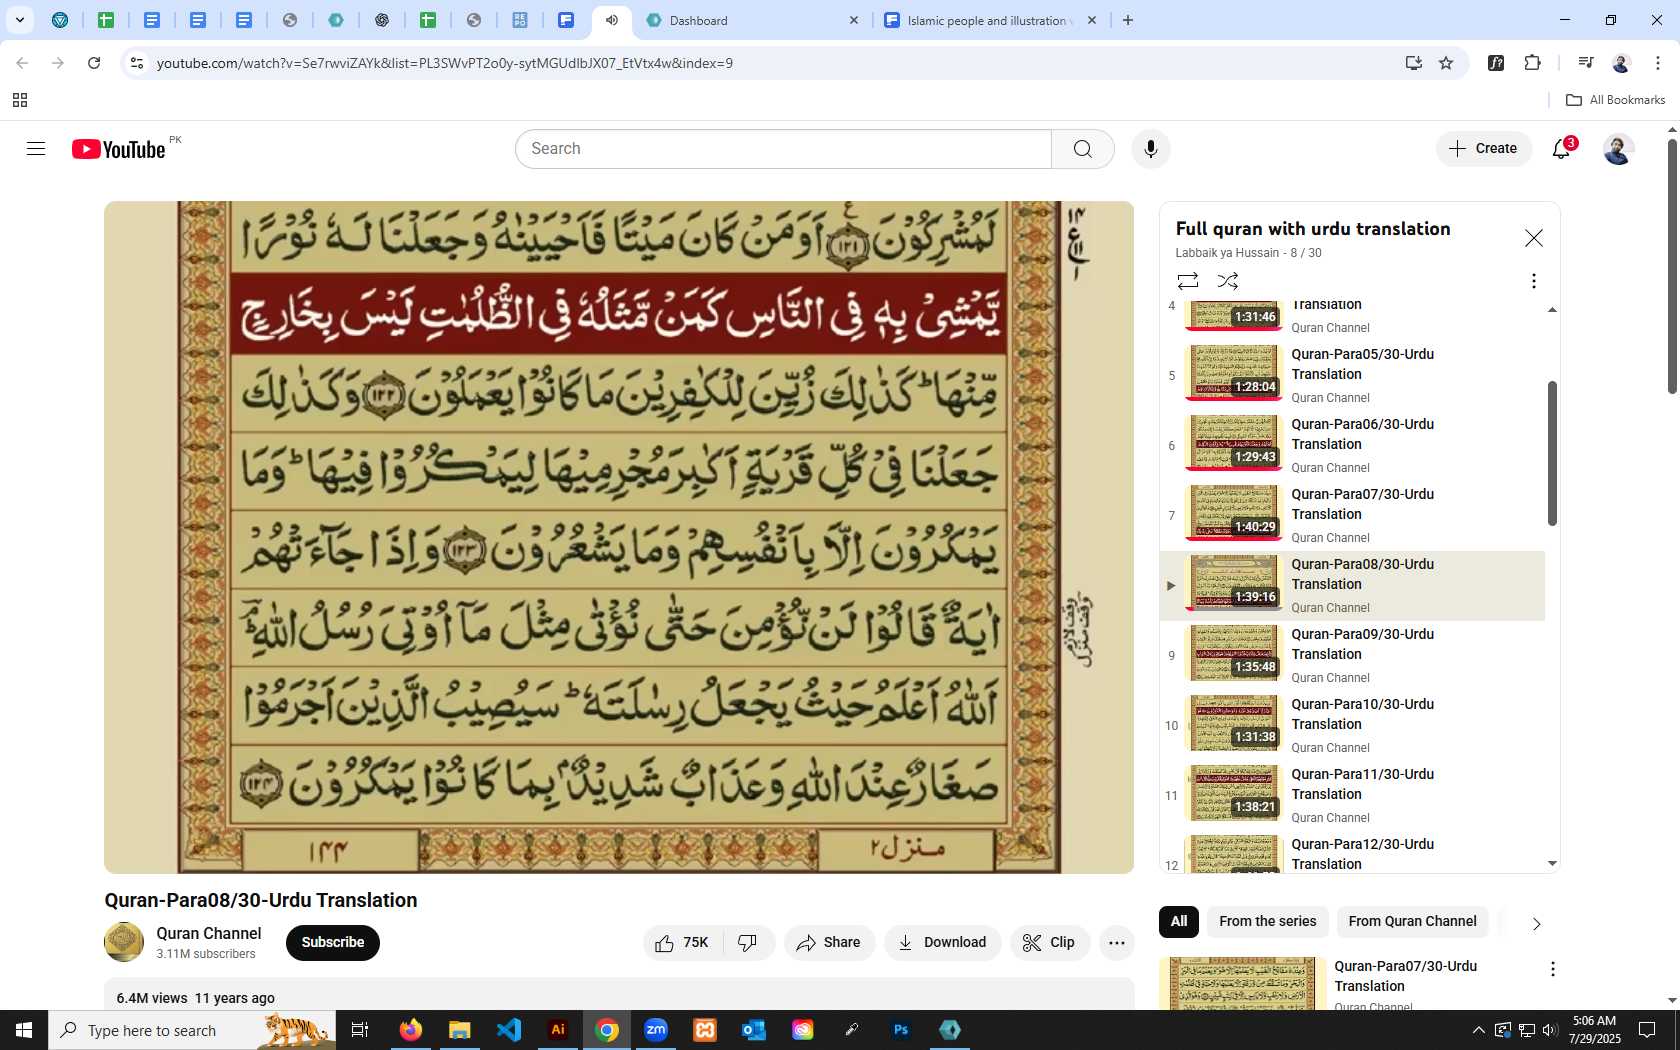 Dashboard
Islamic people and illustration
youtube.com/watch?v=Se7rwviZAYk&list=PL3SWvPT2o0y-sytMGUdlbJX07_EtVtx4w&index=9
All Bookmarks
YouTube PK
Search
Create
3
لَمُشْرِكُوْنَ ﴿۱۲۱﴾ اَوَمَنْ كَانَ مَيْتًا فَاَحْيَيْنٰهُ وَجَعَلْنَا لَهٗ نُوْرًا
يَّمْشِيْ بِهٖ فِي النَّاسِ كَمَنْ مَّثَلُهٗ فِي الظُّلُمٰتِ لَيْسَ بِخَارِجٍ
مِّنْهَا ؕ كَذٰلِكَ زُيِّنَ لِلْكٰفِرِيْنَ مَا كَانُوْا يَعْمَلُوْنَ ﴿۱۲۲﴾ وَكَذٰلِكَ
جَعَلْنَا فِيْ كُلِّ قَرْيَةٍ اَكٰبِرَ مُجْرِمِيْهَا لِيَمْكُرُوْا فِيْهَا ؕ وَمَا
يَمْكُرُوْنَ اِلَّا بِاَنْفُسِهِمْ وَمَا يَشْعُرُوْنَ ﴿۱۲۳﴾ وَاِذَا جَآءَتْهُمْ
اٰيَةٌ قَالُوْا لَنْ نُّؤْمِنَ حَتّٰى نُؤْتٰى مِثْلَ مَاۤ اُوْتِيَ رُسُلُ اللّٰهِ ؔۘ
اَللّٰهُ اَعْلَمُ حَيْثُ يَجْعَلُ رِسٰلَتَهٗ ؕ سَيُصِيْبُ الَّذِيْنَ اَجْرَمُوْا
صَغَارٌ عِنْدَ اللّٰهِ وَعَذَابٌ شَدِيْدٌۢ بِمَا كَانُوْا يَمْكُرُوْنَ ﴿۱۲۴﴾
منزل۲
۱۴۴
Quran-Para08/30-Urdu Translation
Quran Channel
3.11M subscribers
Subscribe
75K
Share
Download
Clip
6.4M views 11 years ago
Full quran with urdu translation
Labbaik ya Hussain - 8 / 30
4
1:31:46
Translation
Quran Channel
5
1:28:04
Quran-Para05/30-Urdu
Translation
Quran Channel
6
1:29:43
Quran-Para06/30-Urdu
Translation
Quran Channel
7
1:40:29
Quran-Para07/30-Urdu
Translation
Quran Channel
1:39:16
Quran-Para08/30-Urdu
Translation
Quran Channel
9
1:35:48
Quran-Para09/30-Urdu
Translation
Quran Channel
10
1:31:38
Quran-Para10/30-Urdu
Translation
Quran Channel
11
1:38:21
Quran-Para11/30-Urdu
Translation
Quran Channel
12
Quran-Para12/30-Urdu
Translation
All
From the series
From Quran Channel
Quran-Para07/30-Urdu
Translation
Quran Channel
Type here to search
5:06 AM
7/29/2025